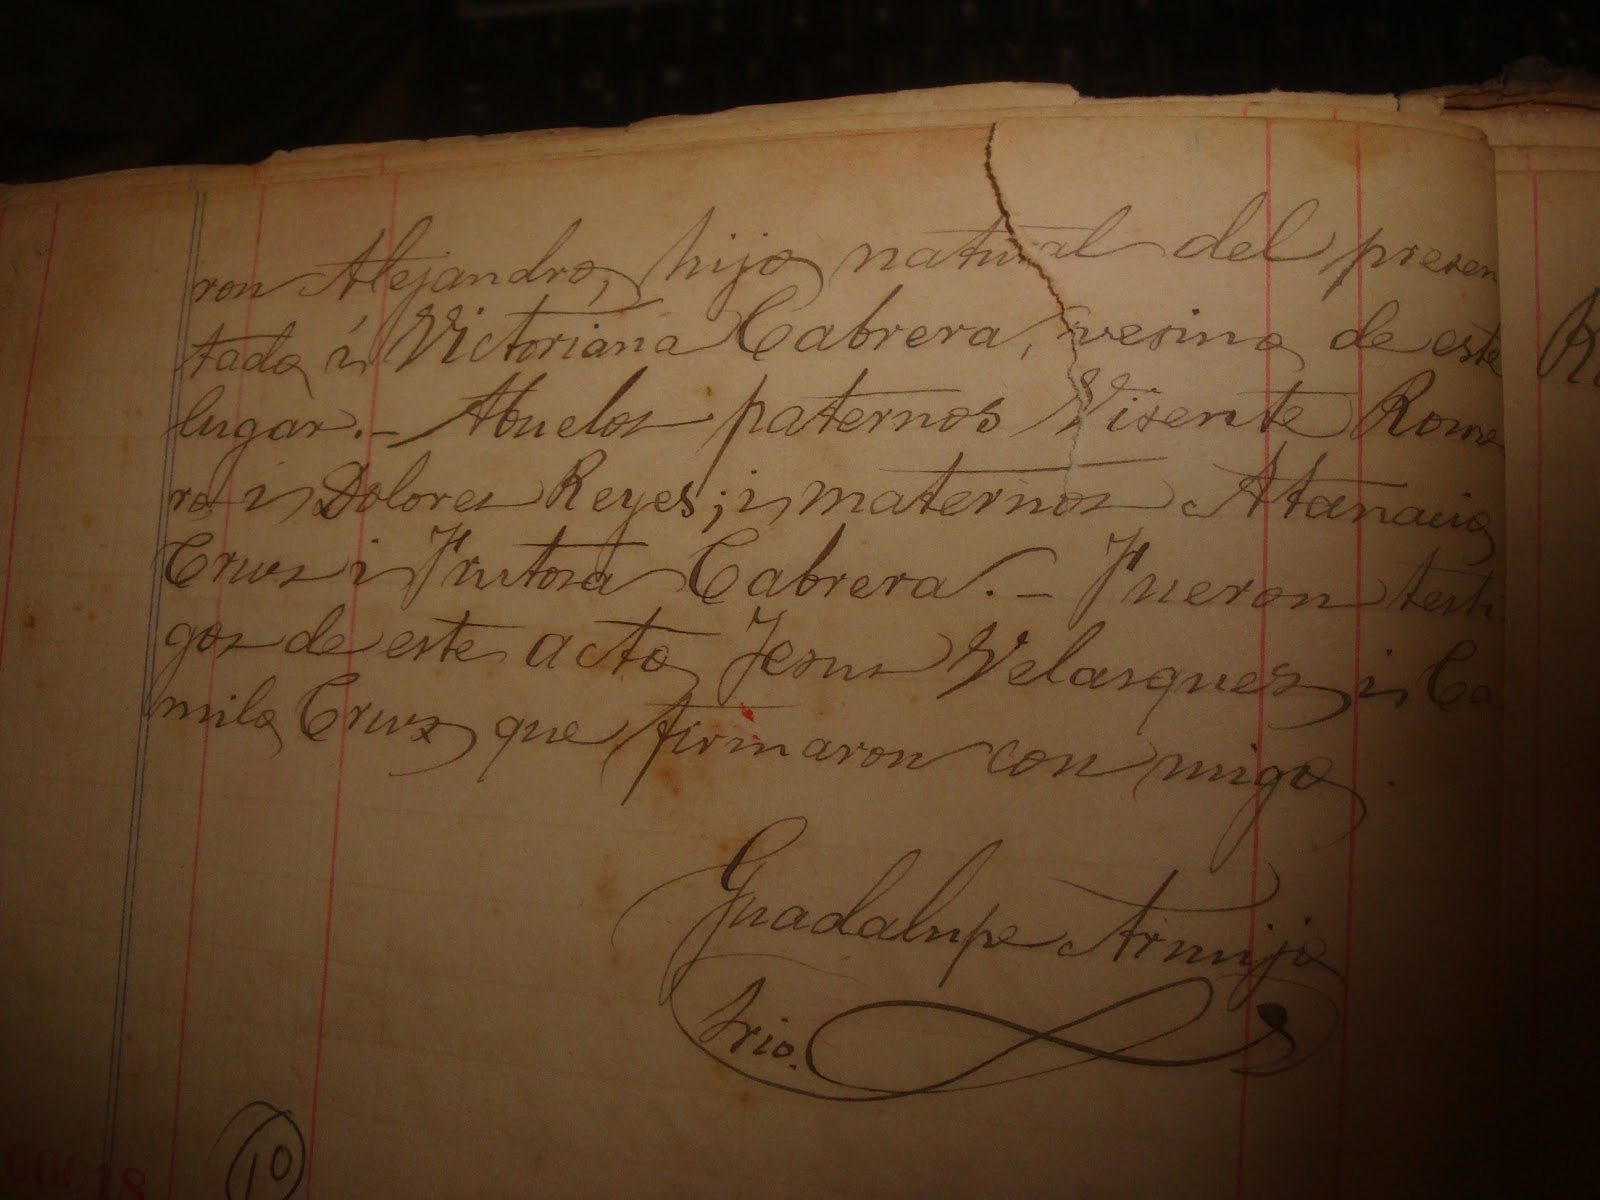 ron Alejandro, hijo natural del presen
tado i Victoriana Cabrera, vesina de este
lugar.- Abuelos paternos Visente Rome
ro i Dolores Reyes; i maternos Atanacio
Cruz i Frutosa Cabrera.- Fueron testi
gos de este acto Jesus Velasquez i Ca
milo Cruz que firmaron con migo.
Guadalupe Armijo
Srio.
10